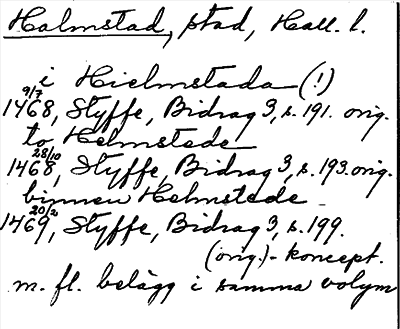 Halmstad, stad, Hall. l.
i Hielmstada (!)
1468 9/7, Styffe, Bidrag 3, s. 191. orig.
to Helmstede
1468 28/10, Styffe, Bidrag 3, s. 193. orig.
binnen Helmstede
1469 20/2, Styffe, Bidrag 3, s. 199.
(orig.)- koncept.
m. fl. belägg i samma volym